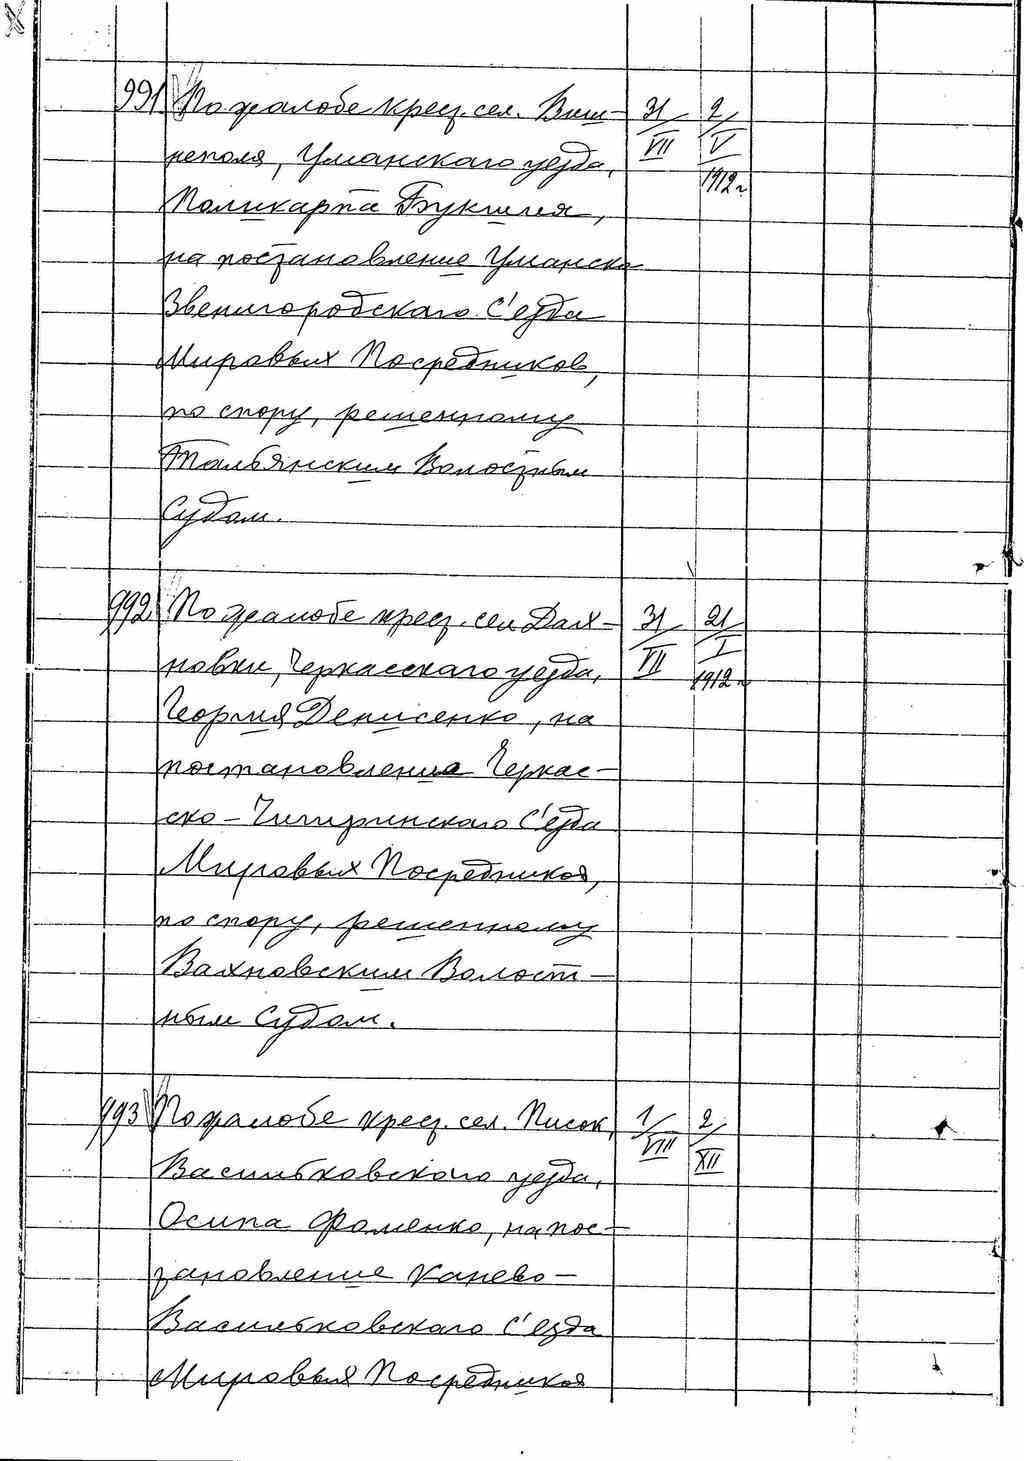 991. По жалобе крест. сел. Виш- 31/VII 2/V 1912 г.
неполя, Уманскаго уезда,
Поликарпа Букшля,
на постановление Уманско
Звенигородскаго С'езда
Мировых Посредников,
по спору, решенному
Тальянским Волостным
Судом.
992. По жалобе крест. сел Дах- 31/VII 21/I 1912 г.
новки, Черкасскаго уезда,
Георгия Денисенко, на
постановление Черкас-
ско-Чигиринскаго С'езда
Мировых Посредников,
по спору, решенному
Вахновским Волост-
ным Судом.
993 По жалобе крест. сел. Писок, 1/VIII 2/XII
Васильковскаго уезда,
Осипа Фоменко, на пос-
тановление Канево-
Васильковскаго С'езда
Мировых Посредников